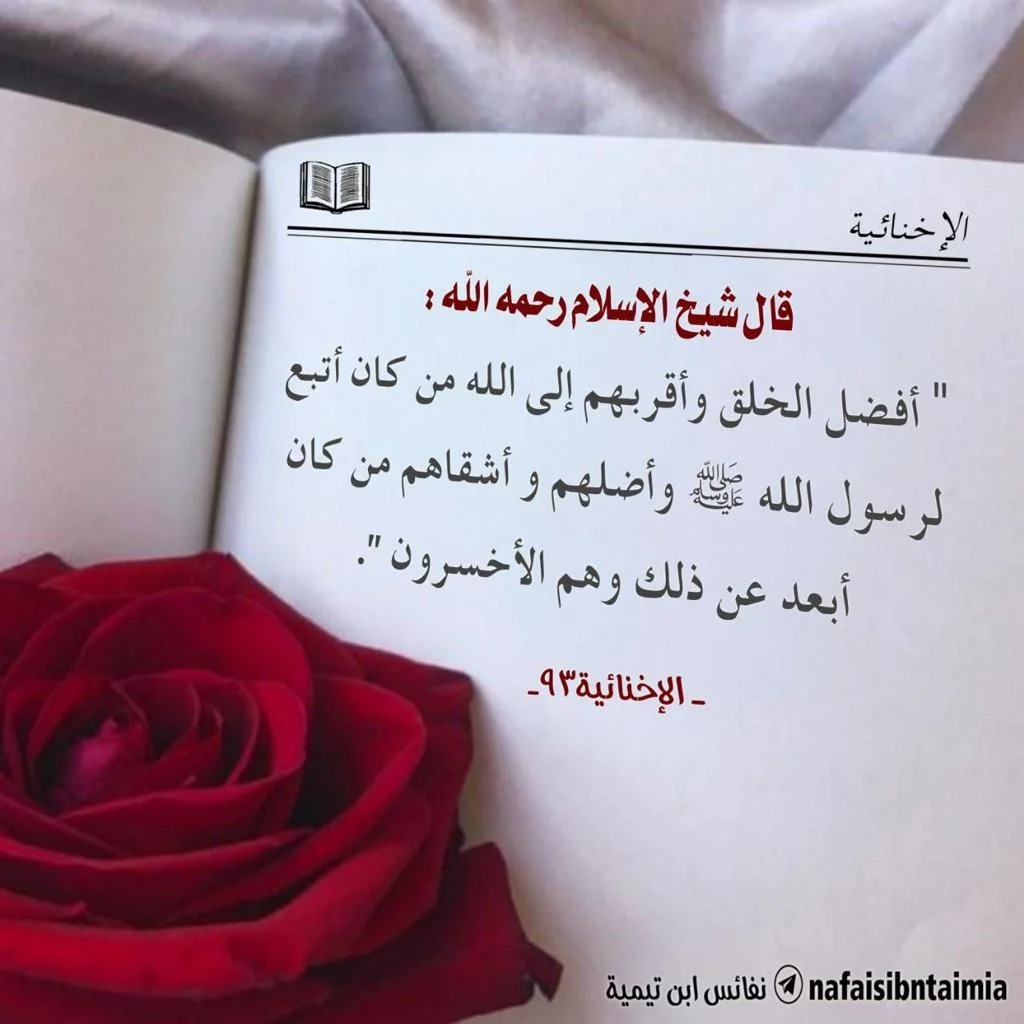 الإخنائية
قال شيخ الإسلام رحمه الله :
" أفضل الخلق وأقربهم إلى الله من كان أتبع
لرسول الله ﷺ وأضلهم و أشقاهم من كان
أبعد عن ذلك وهم الأخسرون ".
ـ الإخنائية٩٣ـ
نفائس ابن تيمية nafaisibntaimia